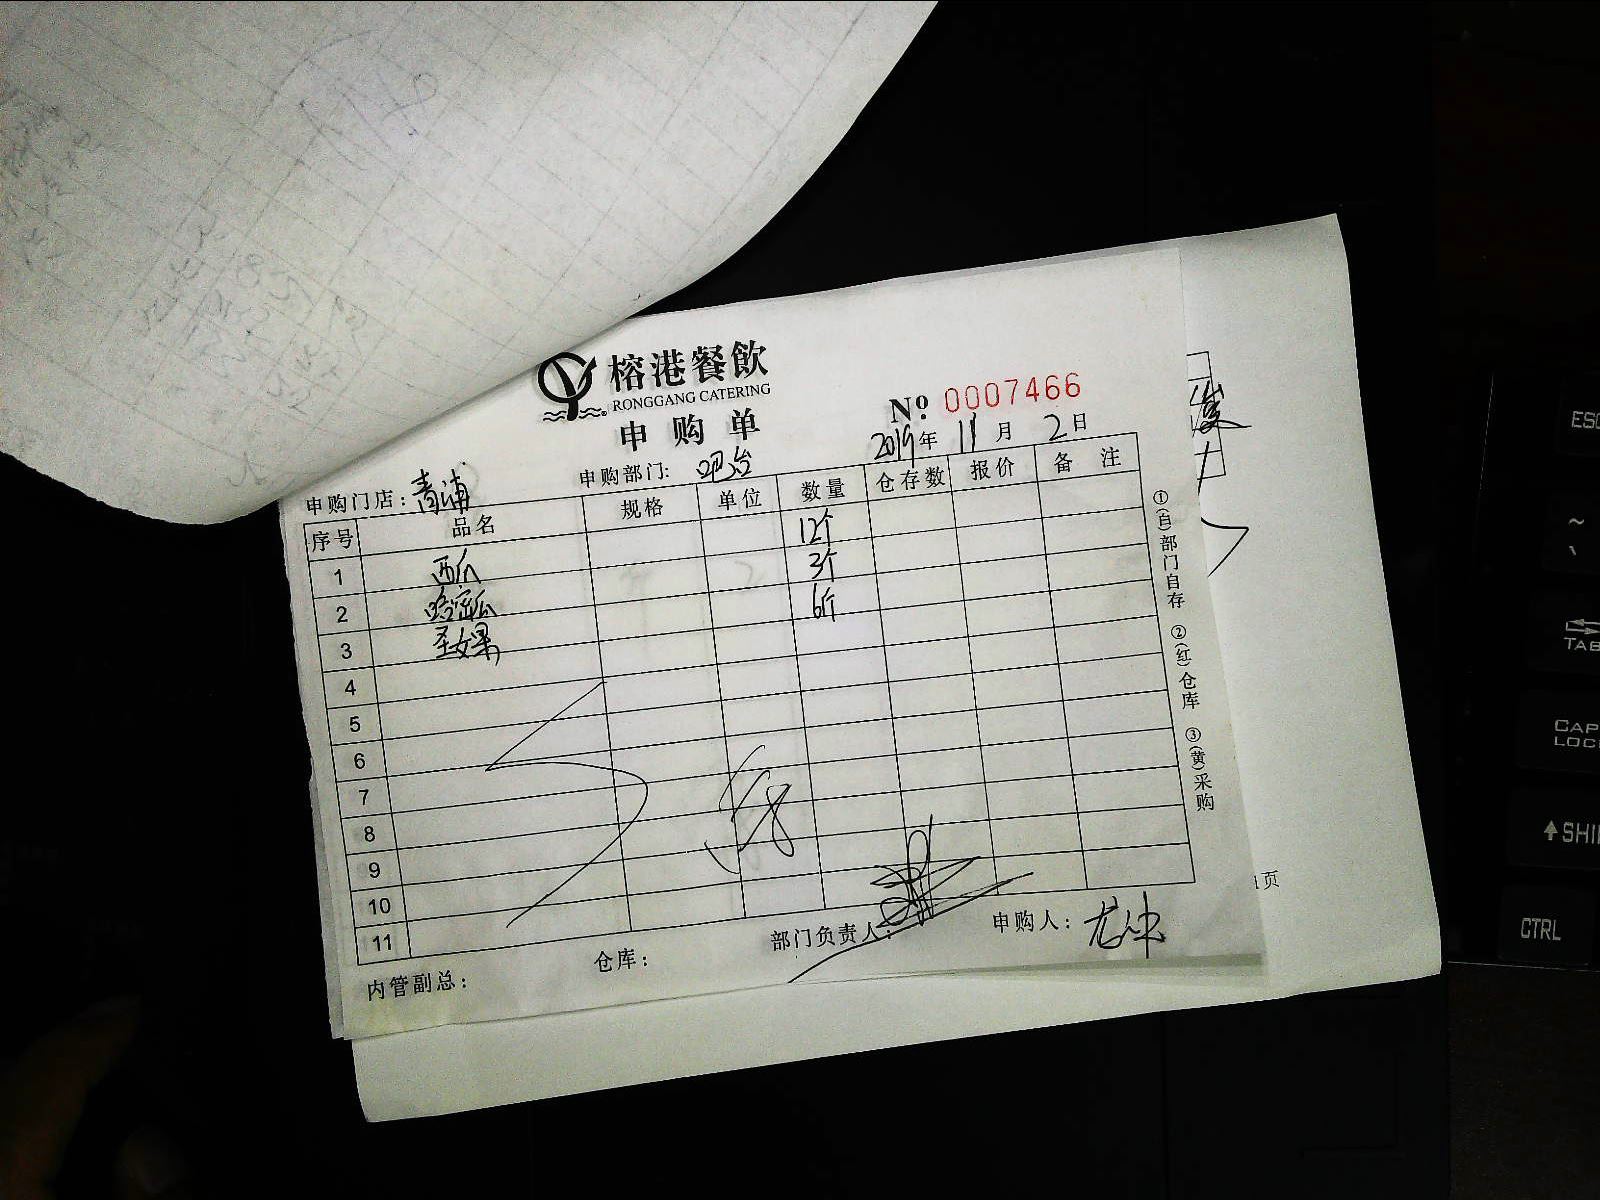 榕港餐飲
RONGGANG CATERING
申购单
№ 0007466
2019年 11月 2日
申购门店：青浦 申购部门: 吧台
序号 品名 规格 单位 数量 仓存数 报价 备注
1 西瓜 12个
2 哈密瓜 3个
3 圣女果 6斤
4
5
6
7
8
9
10
11
内管副总： 仓库： 部门负责人： 申购人：
①(白)部门自存 ②(红)仓库 ③(黄)采购
页
ESC
~
TAB
CAPS
LOCK
SHI
CTRL